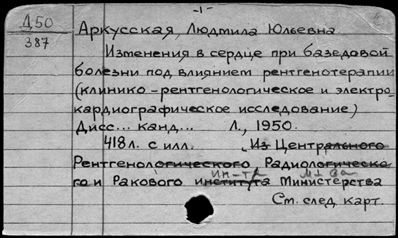 -1-
Д50
387
Аркусская, Людмила Юльевна
Изменения в сердце при базедовой
болезни под влиянием рентгенотерапии
(клинико-рентгенологическое и электро-
кардиографическое исследование)
Дисс... канд... Л., 1950.
418л. с илл. Из Центрального
Рентгенологического Радиологическо
го и Ракового института Министерства
ин-та М-ва
См. след. карт.